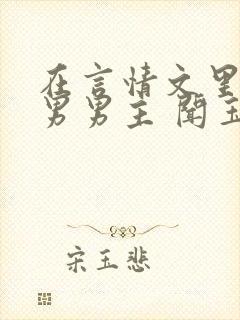 在言情文里
男男主 闻玉
宋玉悲